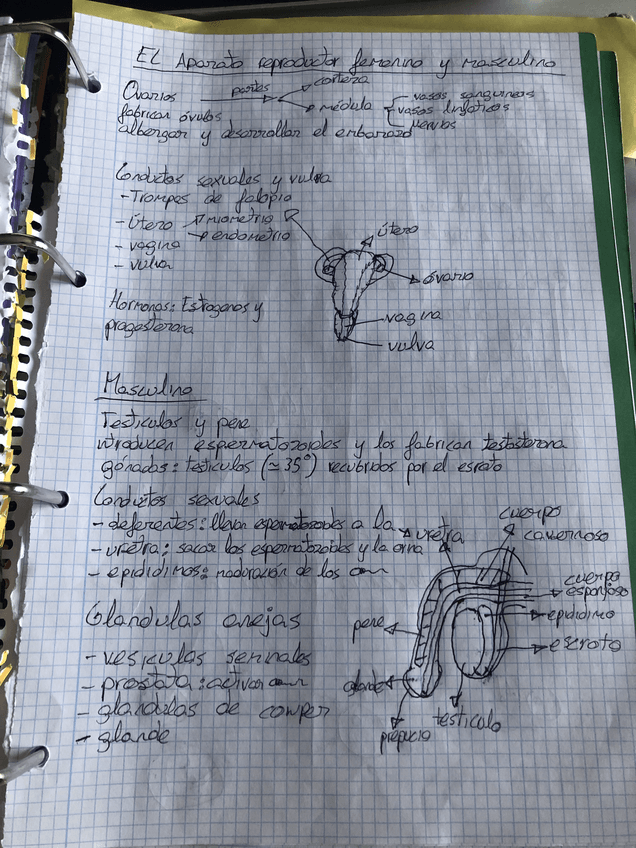 EL Aparato reproductor femenino y masculino
Ovarios partes corteza
médula vasos sanguineos
vasos linfaticos
nervios
fabrican óvulos
albergan y desarrollan el embarazo
Conductos sexuales y vulva
- Trompas de falopio
- Útero miometrio
endometrio
- vagina
- vulva
útero
óvario
vagina
vulva
Hormonas: Estrogenos y
progesterona
Masculino
Testiculos y pene
introducen espermatozoides y los fabrican testosterona
gónadas: testiculos (≃35°) recubridos por el esroto
Conductos sexuales
- deferentes: llevan espermatozoides a la uretra
- uretra: sacar los espermatozoides y la orina
- epididimos: maduración de los
cuerpo
cavernoso
cuerpo
esponjoso
epididimo
escroto
pene
glande
prepucio
testiculo
Glandulas anejas
- vesiculas seminales
- prostata: activar
- glandulas de cowper
- glande